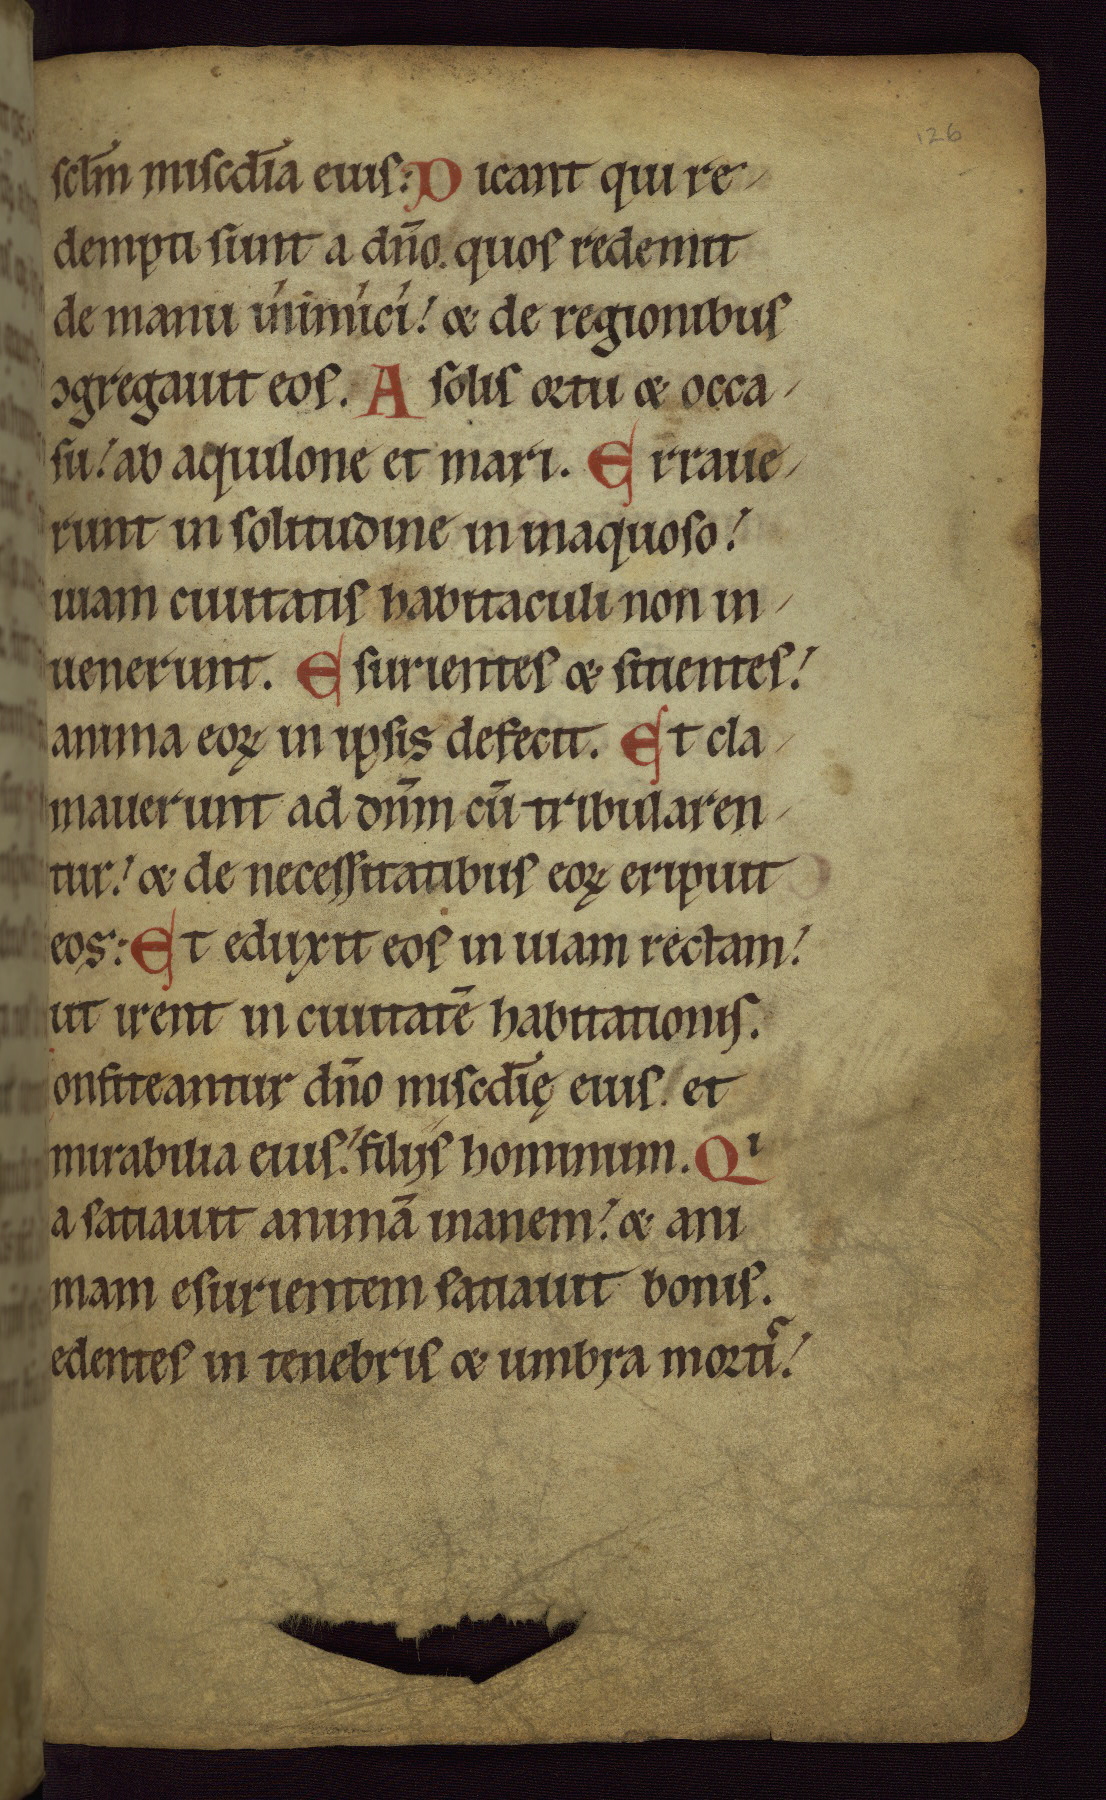 126
sclm̄ miscdīa eius: Dicant qui re-
dempti sunt a dn̄o. quos redemit
de manu inimici! & de regionibus
ɔgregauit eos. A solis ortu & occa-
su! ab aquilone et mari. Erraue-
runt in solitudine in inaquoso!
uiam ciuitatis habitaculi non in-
uenerunt. Esurientes & sitientes!
anima eoꝝ in ipsis defecit. Et cla-
mauerunt ad dn̄m cū tribularen-
tur! & de necessitatibus eoꝝ eripuit
eos: Et eduxit eos in uiam rectam!
ut irent in ciuitatē habitationis.
onfiteantur dn̄o miscdīę eius. et
mirabilia eius! filijs hominum. Qi
a satiauit animā inanem! & ani
mam esurientem satiauit bonis.
edentes in tenebris & umbra mortis!